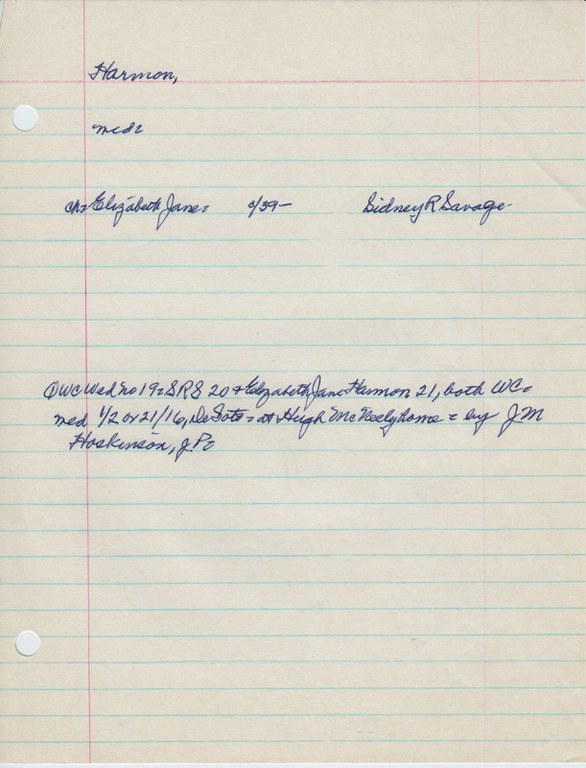 Harmon,
md=
ch= Elizabeth Jane= c/39- Sidney R Savage
① WC Wed no 19= SRS 20 & Elizabeth Jane Harmon 21, both WC=
med 1/2 or 21/16, DeSoto= at Hugh McNeely home= by JM
Hoskinson, J.P.